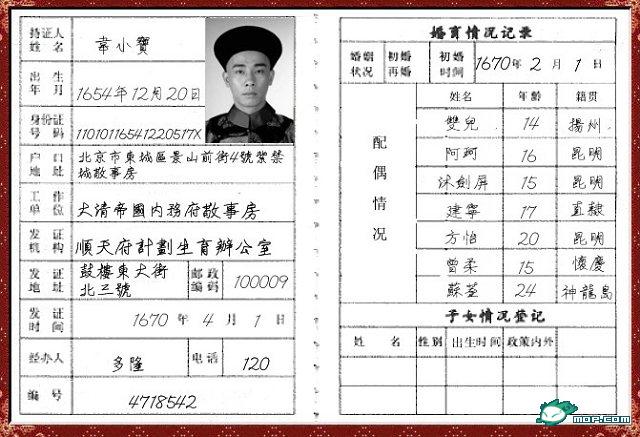 持证人
姓名
韋小寶
出生
年月
1654年12月20日
身份证
号码
11010116541220517X
户口
地址
北京市東城區景山前街4號紫禁
城敬事房
工作
单位
大清帝國内務府敬事房
发证
机构
順天府計劃生育辦公室
发证
地址
鼓樓東大街
北三號
邮政
编码
100009
发证
时间
1670 年 4 月 1 日
经办人
多隆
电话
120
编号
4718542
婚育情况记录
婚姻
状况
初婚
再婚
初婚
时间
1670 年 2 月 1 日
配偶情况
姓名 年龄 籍贯
雙兒 14 揚州
阿珂 16 昆明
沐劍屏 15 昆明
建寧 17 直隸
方怡 20 昆明
曾柔 15 懷慶
蘇荃 24 神龍島
子女情况登记
姓名 性别 出生时间 政策内外
MOP.COM